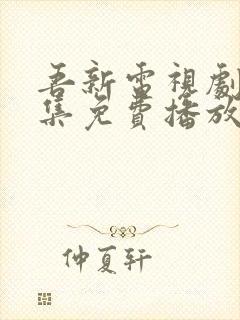 吾新雷視劇
集免費播放
仲夏轩